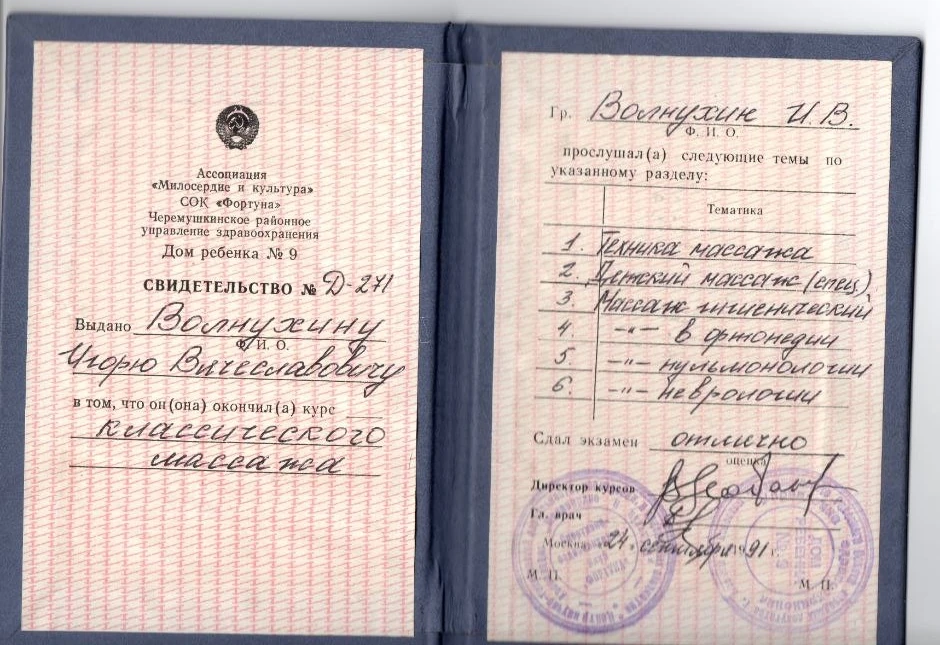 Ассоциация
«Милосердие и культура»
СОК «Фортуна»
Черемушкинское районное
управление здравоохранения
Дом ребенка № 9
СВИДЕТЕЛЬСТВО № Д-271
Выдано Волнухину
Ф. И. О.
Игорю Вячеславовичу
в том, что он(она) окончил(а) курс
классического
массажа
Гр. Волнухин И. В.
Ф. И. О.
прослушал(а) следующие темы по
указанному разделу:
Тематика
1. Техника массажа
2. Детский массаж (спец)
3. Массаж гигиенический
4. -"- в ортопедии
5 -"- пульмонологии
6. -"- неврологии
Сдал экзамен отлично
оценка
Директор курсов
Гл. врач
Москва «24» сентября 1991 г.
М. П. М. П.